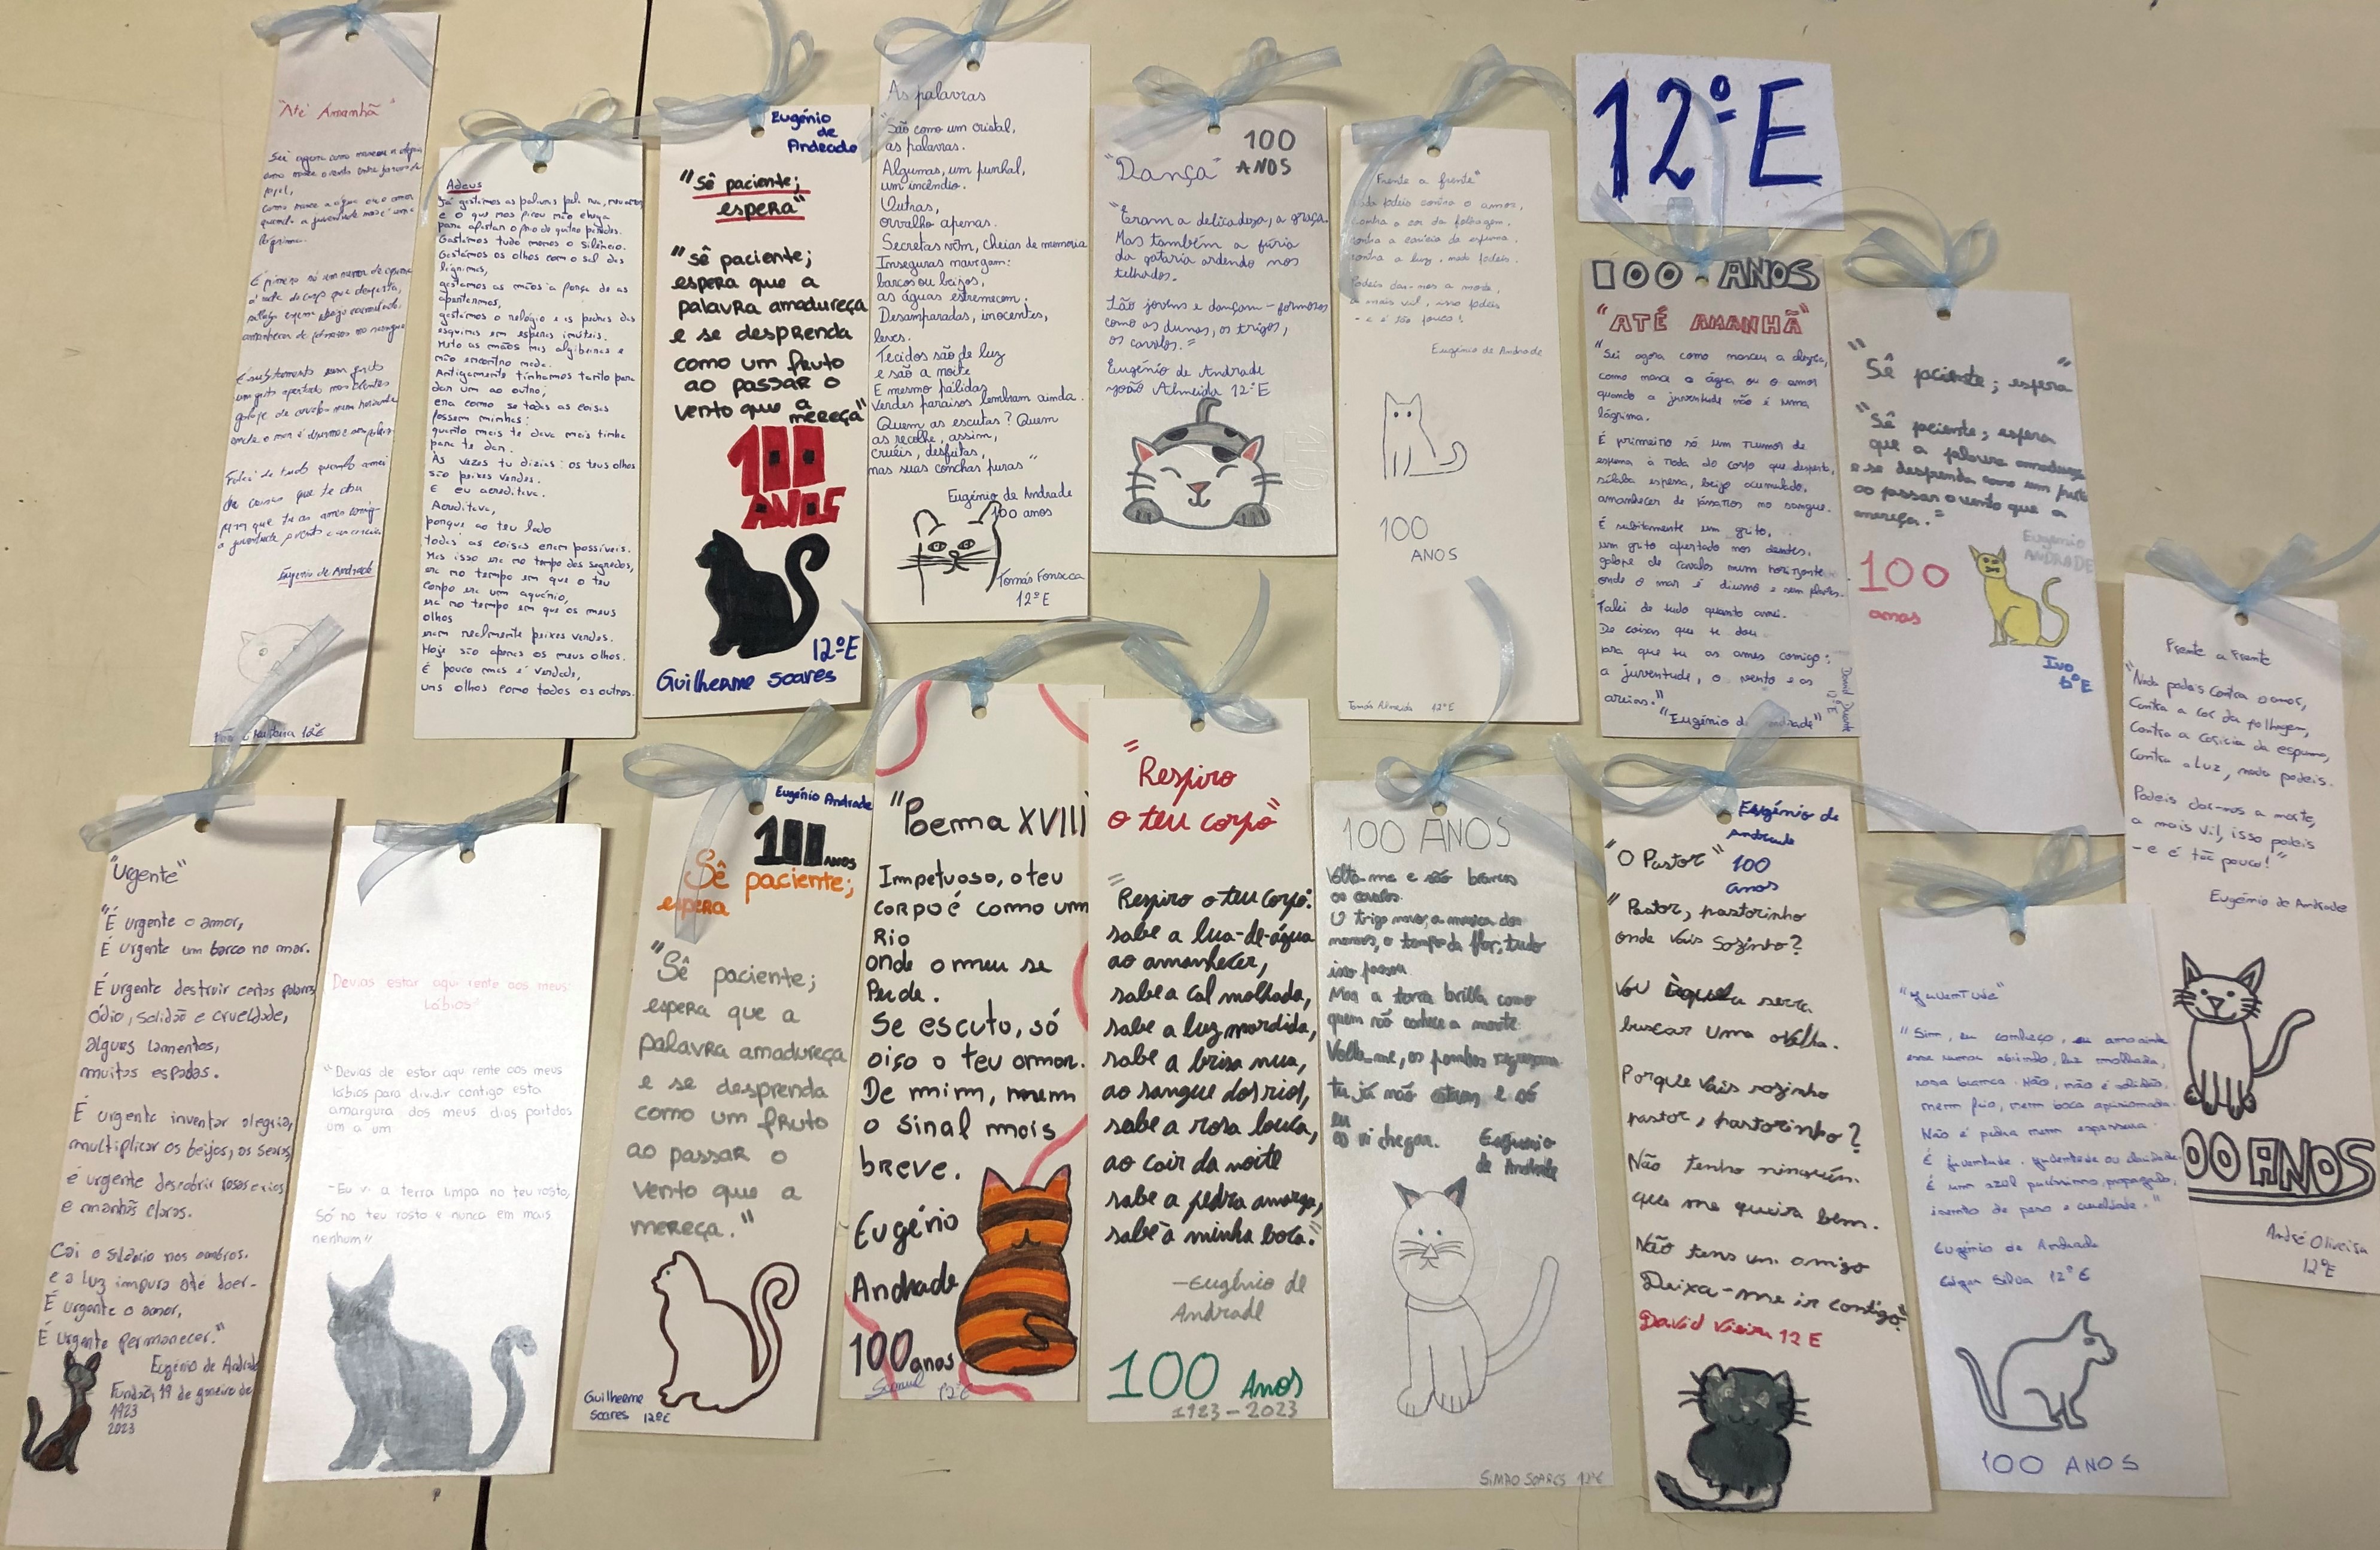 "Até Amanhã"
Eugénio de Andrade
12ºE
Adeus
Já gastámos as palavras pela rua, meu amor,
e o que nos ficou não chega
para afastar o frio de quatro paredes.
Gastámos tudo menos o silêncio.
Gastámos os olhos com o sal das
lágrimas,
gastámos as mãos à força de as
apertarmos,
gastámos o relógio e as pedras das
esquinas em esperas inúteis.
Meto as mãos nas algibeiras e
não encontro nada.
Antigamente tínhamos tanto para
dar um ao outro;
era como se todas as coisas
fossem minhas:
quanto mais te dava mais tinha
para te dar.
Às vezes tu dizias: os teus olhos
são peixes verdes.
E eu acreditava.
Acreditava,
porque ao teu lado
todas as coisas eram possíveis.
Mas isso era no tempo dos segredos,
era no tempo em que o teu
corpo era um aquário,
era no tempo em que os meus
olhos
eram realmente peixes verdes.
Hoje são apenas os meus olhos.
É pouco mas é verdade,
uns olhos como todos os outros.
Eugénio
de
Andrade
"Sê paciente;
espera"
"sê paciente;
espera que a
palavra amadureça
e se desprenda
como um fruto
ao passar o
vento que a
mereça"
100
ANOS
12ºE
Guilherme Soares
As palavras
"São como um cristal,
as palavras.
Algumas, um punhal,
um incêndio.
Outras,
orvalho apenas.
Secretas vêm, cheias de memória
Inseguras navegam:
barcos ou beijos,
as águas estremecem.
Desamparadas, inocentes,
leves.
Tecidos são de luz
e são a noite
E mesmo pálidas
verdes paraísos lembram ainda.
Quem as escuta? Quem
as recolhe, assim,
cruéis, desfeitas,
nas suas conchas puras"
Eugénio de Andrade
100 anos
Tomás Fonseca
12ºE
100
ANOS
"Dança"
"Eram a delicadeza, a graça.
Mas também a fúria
da gataria ardendo nos
telhados.
São jovens e dançam - formosos
como as dunas, os trigos,
os cavalos."
Eugénio de Andrade
João Almeida 12ºE
Frente a frente"
Nada podeis contra o amor,
contra a cor da folhagem,
contra a carícia da espuma,
contra a luz, nada podeis.
Podeis dar-nos a morte,
a mais vil, isso podeis
- e é tão pouco!
Eugénio de Andrade
100
ANOS
Tomás Almeida 12ºE
12ºE
100 ANOS
"ATÉ AMANHÃ"
"Sei agora como nasceu a alegria,
como nasce a água ou o amor
quando a juventude não é uma
lágrima.
É primeiro só um rumor de
espuma à roda do corpo que desperta,
sílaba espessa, beijo acumulado,
amanhecer de pássaros no sangue.
É subitamente um grito,
um grito apertado nos dentes,
galope de cavalos num horizonte
onde o mar é diurno e sem
Falei de tudo quanto amei.
De coisas que te dou
para que tu as ames comigo:
a juventude, o vento e as
areias."
"Eugénio de Andrade"
David Duarte
12ºE
"Sê paciente; espera"
"Sê paciente; espera
que a palavra amadureça
e se desprenda como um fruto
ao passar o vento que a
mereça."
Eugénio
ANDRADE
100
anos
Ivo
Frente a Frente
"Nada podeis contra o amor,
Contra a cor da folhagem,
Contra a carícia da espuma,
Contra a Luz, nada podeis.
Podeis dar-nos a morte,
a mais vil, isso podeis
- e é tão pouco!"
Eugénio de Andrade
00 ANOS
André Oliveira
12ºE
"Urgente"
"É urgente o amor,
É urgente um barco no mar.
É urgente destruir certas palavras
ódio, solidão e crueldade,
alguns lamentos,
muitas espadas.
É urgente inventar alegria,
multiplicar os beijos, as searas,
é urgente descobrir rosas e rios
e manhãs claras.
Cai o silêncio nos ombros.
e a luz impura até doer-
É urgente o amor,
É urgente permanecer."
Eugénio de Andrade
Fundão, 19 de janeiro de
1923
2023
Devias estar aqui rente aos meus
lábios"
"Devias de estar aqui rente aos meus
lábios para dividir contigo esta
amargura dos meus dias partidos
um a um
-Eu vi a terra limpa no teu rosto,
Só no teu rosto e nunca em mais
nenhum"
Eugénio Andrade
100 ANOS
Sê paciente;
espera
"Sê paciente;
espera que a
palavra amadureça
e se desprenda
como um fruto
ao passar o
vento que a
mereça."
Guilherme
Soares 12ºE
"Poema XVIII"
Impetuoso, o teu
corpo é como um
Rio
onde o meu se
Perde.
Se escuto, só
oiço o teu amor.
De mim, nem
o sinal mais
breve.
Eugénio
Andrade
100 anos
Samuel 12ºE
"Respiro
o teu corpo"
"Respiro o teu corpo:
sabe a lua-de-água
ao amanhecer,
sabe a cal molhada,
sabe a luz mordida,
sabe a brisa nua,
ao sangue dos rios,
sabe a rosa louca,
ao cair da noite
sabe a pedra amarga,
sabe à minha boca."
-Eugénio de
Andrade
100 Anos
1923-2023
100 ANOS
Volta-me e são brancos
os cavalos.
O trigo novo, a música dos
o tempo da flor, tudo
isso passou
Mas a terra brilha como
quem não conhece a morte
Volta-me, os pombos regressam
tu já não estavas e só
eu
os vi chegar.
Eugénio
de Andrade
SIMÃO SOARES 12ºE
Eugénio de
Andrade
100
anos
"O Pastor"
"Pastor, pastorinho
onde vais sozinho?
Vou àquela serra
buscar uma ovelha.
Porque vais sozinho
pastor, pastorinho?
Não tenho ninguém
que me queira bem.
Não tens um amigo
Deixa-me ir contigo"
David Vieira 12 E
"Juventude"
"Sim, eu conheço, eu amo ainda
esse rumor abrindo, luz molhada,
rosa branca. Não, não é solidão,
nem frio, nem boca aprisionada.
Não é pedra nem espessura.
É juventude. Juventude ou claridade.
É um azul puríssimo, propagado,
isento de peso e crueldade."
Eugénio de Andrade
Silva 12ºE
100 ANOS